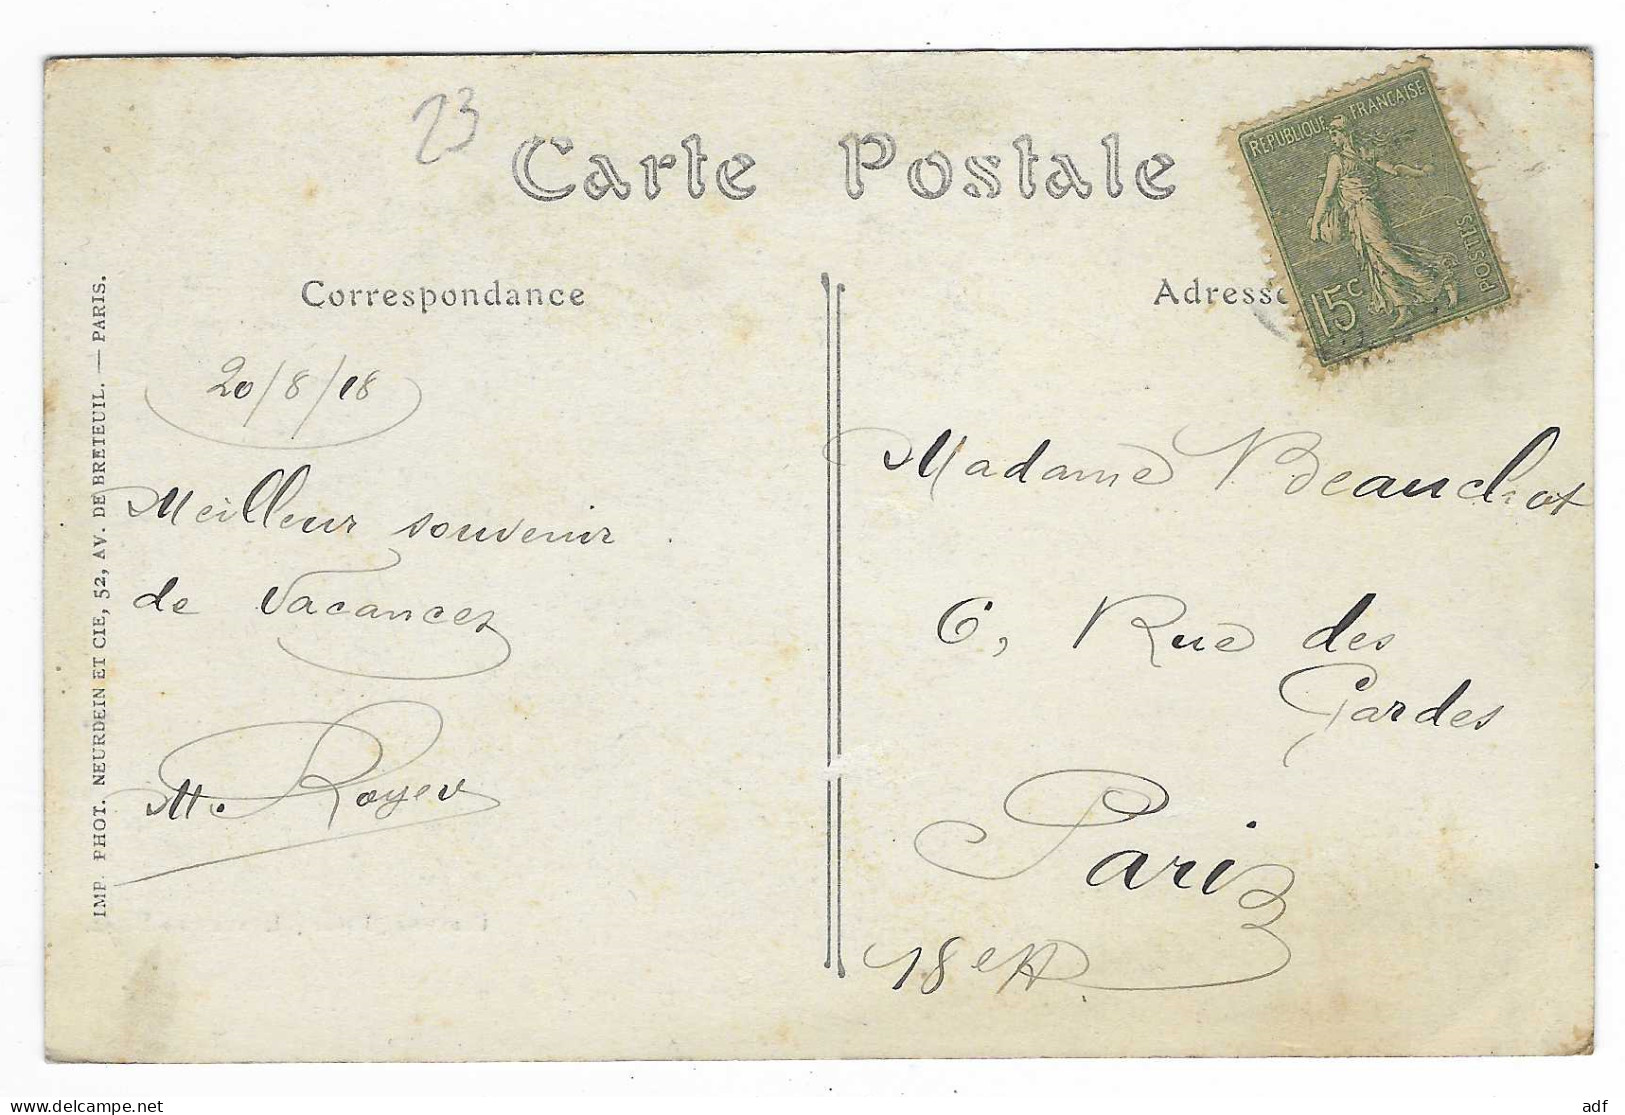 23
Carte Postale
REPUBLIQUE FRANÇAISE
POSTES
15c
Correspondance
Adresse
20/8/18
Meilleur souvenir
de Vacances
M. Royer
Madame Beauchot
6, Rue des
Gardes
Paris
18e A
IMP. PHOT. NEURDEIN ET CIE, 52, AV. DE BRETEUIL. — PARIS.
www.delcampe.net
adf